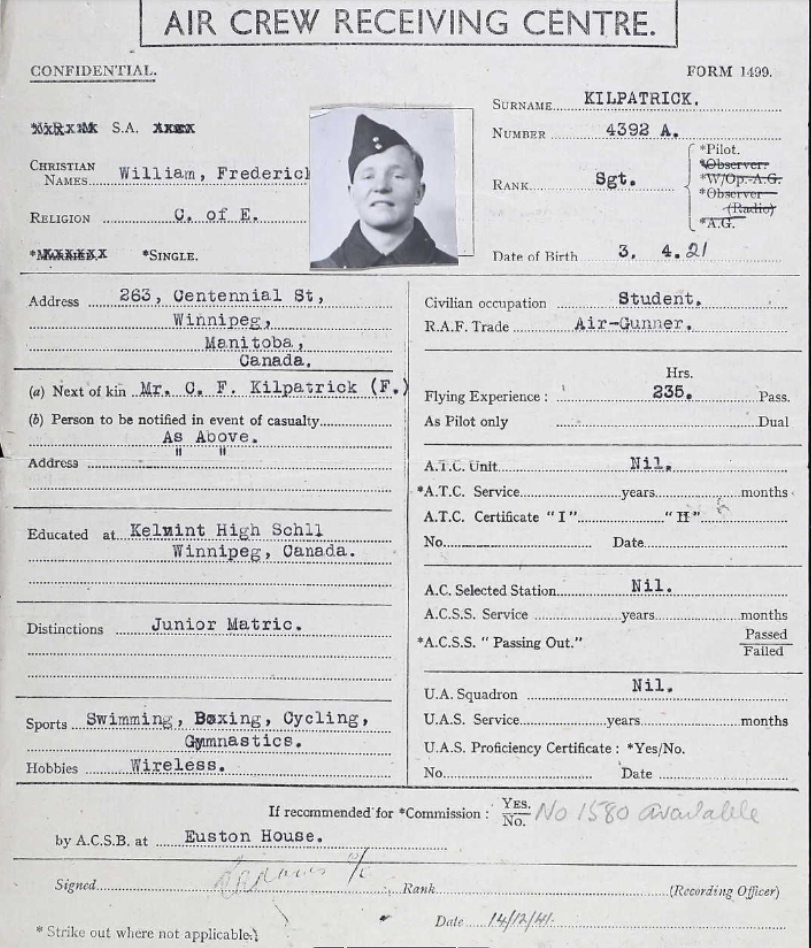 AIR CREW RECEIVING CENTRE.
CONFIDENTIAL.
FORM 1499.
S.A.
SURNAME KILPATRICK.
NUMBER 4392 A.
CHRISTIAN NAMES William, Frederic
RANK Sgt.
*Pilot.
*Observer.
*W/Op.-A.G.
*Observer
(Radio)
*A.G.
RELIGION C. of E.
*SINGLE.
Date of Birth 3. 4. 21
Address 263, Centennial St,
Winnipeg,
Manitoba,
Canada.
(a) Next of kin Mr. C. F. Kilpatrick (F.)
(b) Person to be notified in event of casualty
As Above.
" "
Address
Educated at Kelvint High Schll
Winnipeg, Canada.
Distinctions Junior Matric.
Sports Swimming, Boxing, Cycling,
Gymnastics.
Hobbies Wireless.
Civilian occupation Student.
R.A.F. Trade Air-Gunner.
Hrs.
Flying Experience : 235. Pass.
As Pilot only Dual
A.T.C. Unit Nil.
*A.T.C. Service years months
A.T.C. Certificate "I" "H"
No. Date
A.C. Selected Station Nil.
A.C.S.S. Service years months
*A.C.S.S. "Passing Out." Passed
Failed
U.A. Squadron Nil.
U.A.S. Service years months
U.A.S. Proficiency Certificate : *Yes/No.
No. Date
If recommended for *Commission : YES.
NO. No 1580 available
by A.C.S.B. at Euston House.
Signed Rank (Recording Officer)
Date 14/12/41.
* Strike out where not applicable.